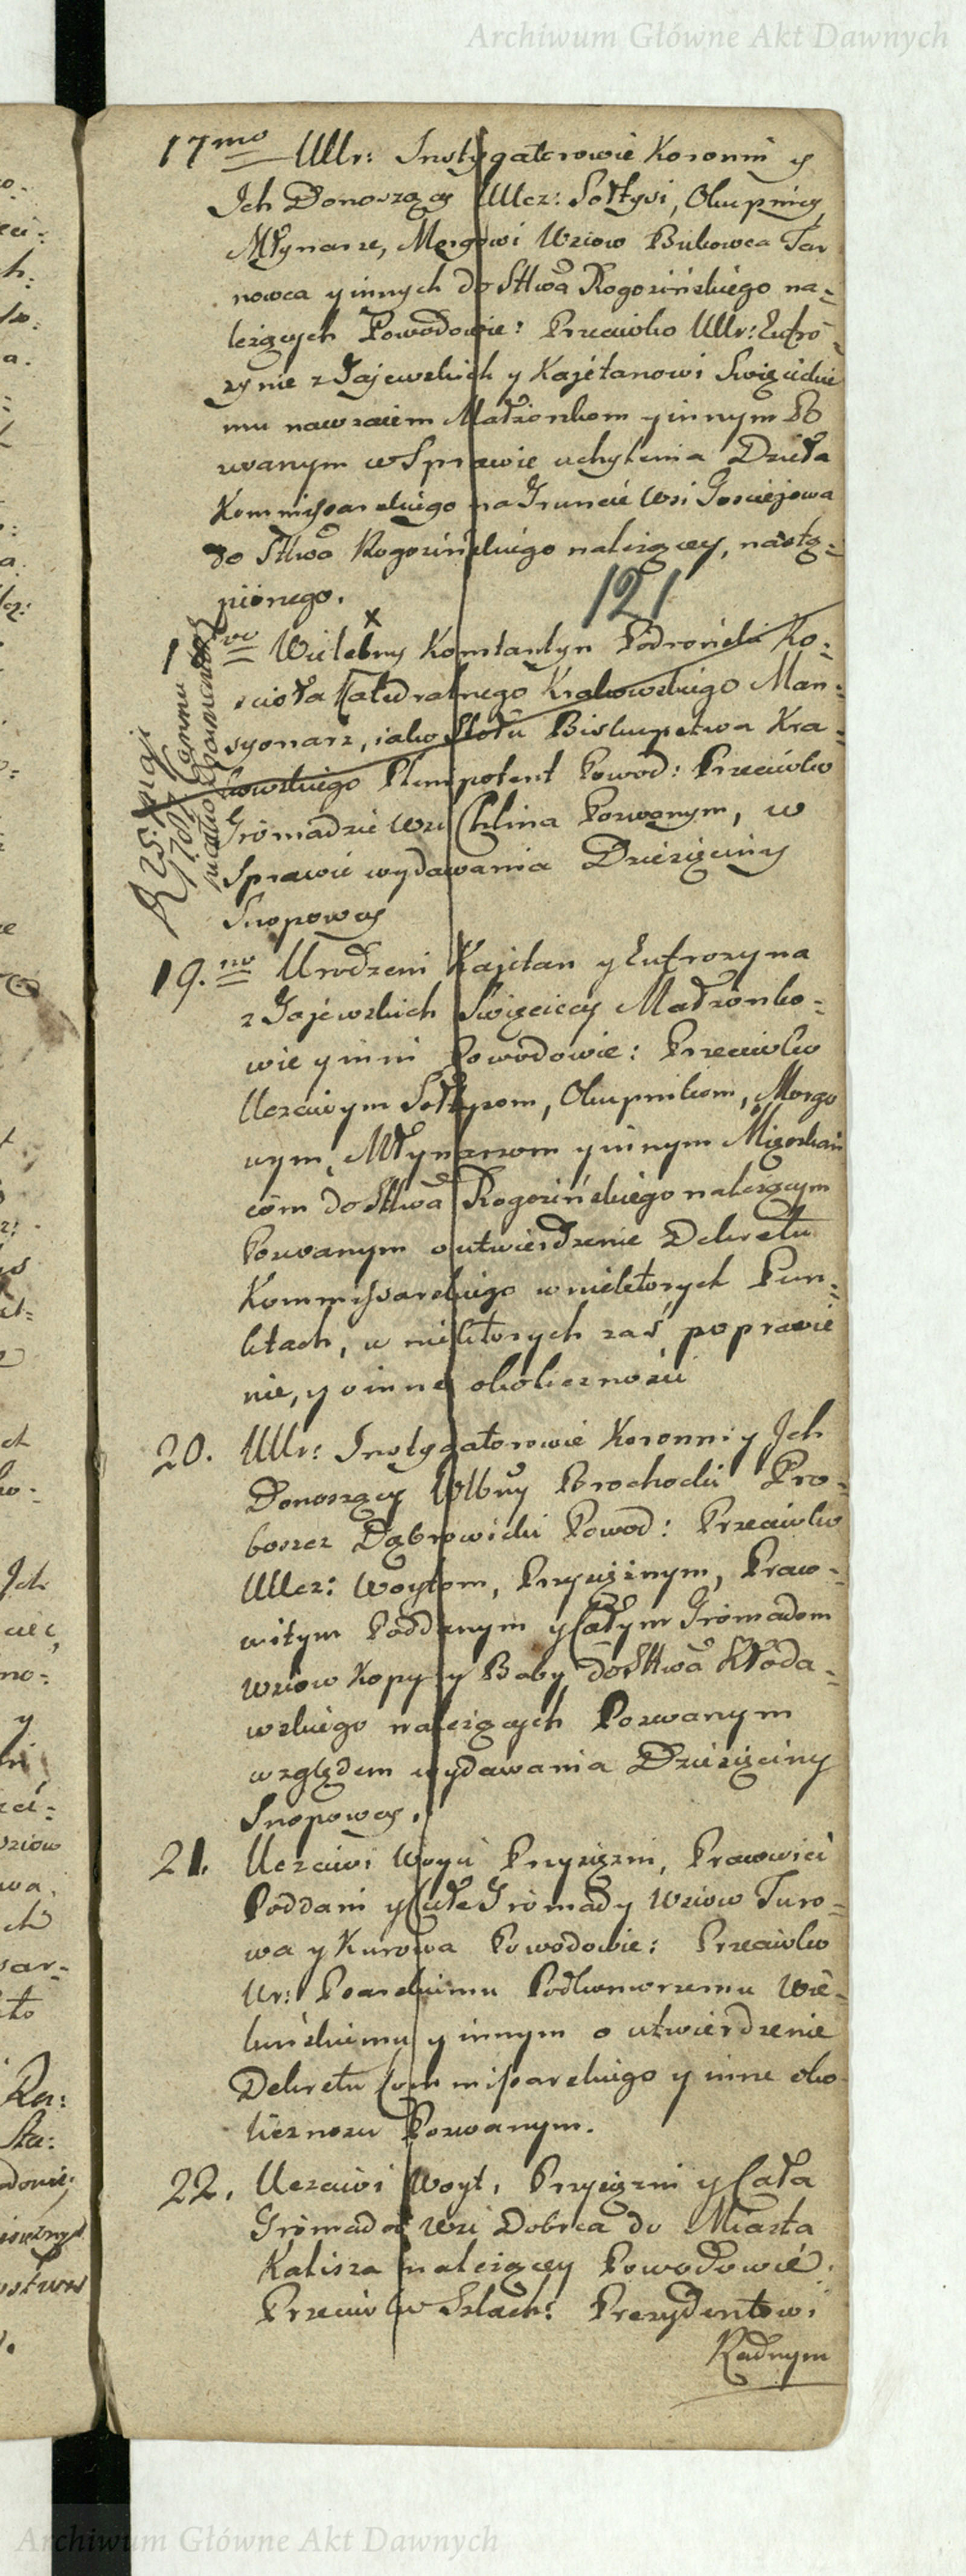 Archiwum Główne Akt Dawnych
17mo Ullr: Instygatorowie Koronni y
Ich Donoszący Ucz: Sołtysi, Okupnicy,
Młynarze, Morgowi Wsiow Bukowca Tar
nowca y innych do Sttwa Rogozińskiego na=
leżących Powodowie: Przeciwko Ullr: Eufro=
zynie z Gajewskich y Kajetanowi Swięcickie
mu nawzaiem Małżonkom y innym Po
zwanym w Sprawie uchylenia Dzieła
Kommissarskiego na Gruncie Wsi Gosciejowa
do Sttwa Rogozińskiego należącey, nastą=
pionego.
121
Wielebny Konstantyn Podroński Ko=
scioła Katedralnego Krakowskiego Man=
syonarz, iako Stołu Biskupstwa Kra=
kowskiego Plenipotent Powod: Przeciwko
Gromadzie Wsi Chlina Pozwanym, w
Sprawie wydawania Dziesięciny
Snopowey
25 maji
19.no Urodzeni Kajetan y Eufrozyna
z Gajewskich Swięciccy Małżonko=
wie y inni Powodowie: Przeciwko
Uczciwym Sołtysom, Okupnikom, Morgo
wym, Młynarzom y innym Mieszkań
com do Sttwa Rogozińskiego należącym
Pozwanym o utwierdzenie Dekretu
Kommissarskiego w niektorych Pun=
ktach, w niektorych zaś poprawie
nie, y o inne okoliczności
20. Ullr: Instygatorowie Koronni y Ich
Donoszący Wbny Brochocki Pro=
boszcz Dąbrowicki Powod: Przeciwko
Ucz: Woytom, Przysiężnym, Praw=
witym Poddanym y Całym Gromadom
Wsiow Kopy y Baby do Sttwa Kłoda=
wskiego należących Pozwanym
względem wydawania Dziesięciny
Snopowey.
21. Uczciwi Woyci Przysiężni, Prawowici
Poddani y Całe Gromady Wsiow Turo=
wa y Kurowa Powodowie: Przeciwko
Ur: Psarskiemu Podkomorzemu Wie=
luńskiemu y innym o utwierdzenie
Dekretu Kommissarskiego y inne oko
liczności Pozwanym.
22. Uczciwi Woyt, Przysiężni y Cała
Gromada Wsi Dobrca do Miasta
Kalisza należącey Powodowie:
Przeciwko Szlach: Prezydentowi
Radnym
Archiwum Główne Akt Dawnych